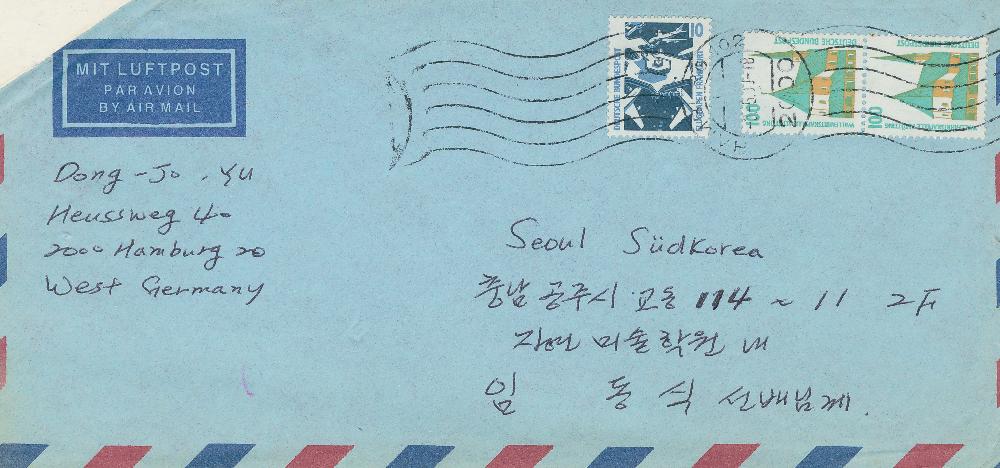 MIT LUFTPOST
PAR AVION
BY AIR MAIL
10
DEUTSCHE BUNDESPOST
FLUGHAFEN FRANKFURT
100
DEUTSCHE BUNDESPOST
100
DEUTSCHE BUNDESPOST
Dong-Jo. Yu
Heussweg 40
2000 Hamburg 20
West Germany
Seoul Südkorea
충남 공주시 교동 114 ~ 11 2F
미술학원 내
임 동 식 선배님께.